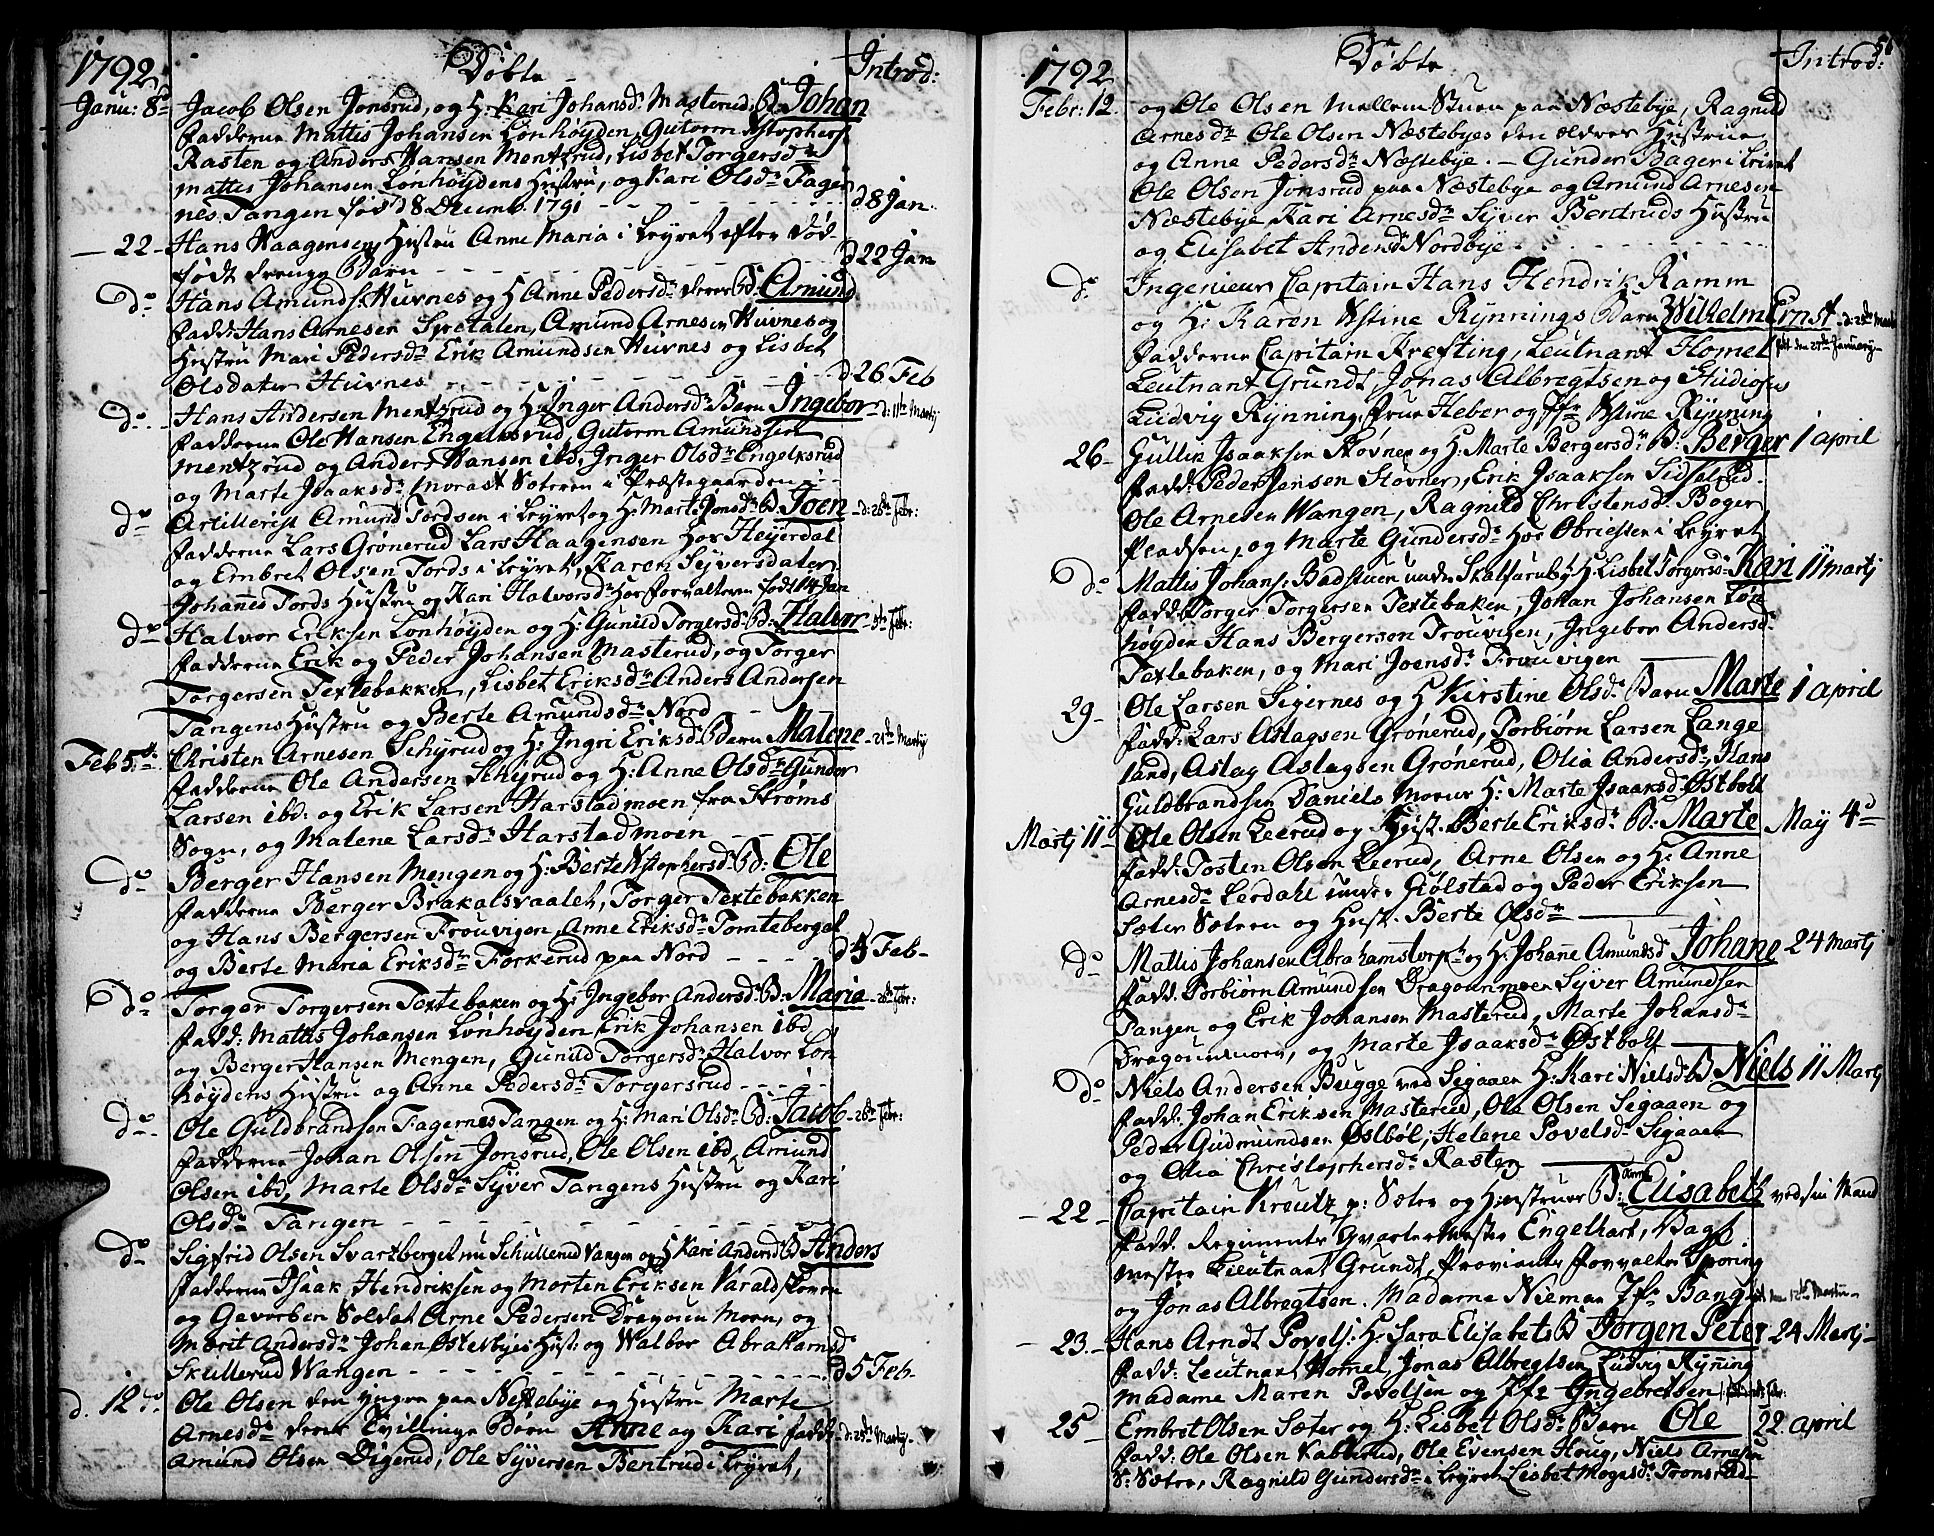 1792 Döbte Introd:
Janu: 8de Jacob Olsen Jonsrud, og H: Kari Johansdr Masterud B: Johan
Fadderne Mattis Johansen Lönhöyden, Gutorm Xstophers:
Rasten og Anders Hansen Mentzrud, Lisbet Torgersdr
Mattis Johansen Lönhöydens Hustru, og Kari Olsdr Fager
nes Tangen föd d 8 Decemb. 1791 d 8 Jan.
22 Hans Haagensens Hustru Anne Maria i Leyret efter död
födt drenge Barn d 22 Jan
do Hans Amunds: Huvnes og H Anne Pedersdr deres B: Amund
Fadd: Hans Arnesen Spetalen, Amund Arnesen Huvnes og
Hustru Mari Pedersdr Erik Amundsen Huvnes og Lisbet
Olsdater Huvnes d 26 Feb
do Hans Andersen Mentzrud og H: Inger Andersdr Barn Ingebor d: 11te Martij
Fadderne Ole Hansen Engelksrud, Gutorm Amundsen
Mentzrud og Anders Hansen ibd, Inger Olsdr Engelksrud
og Marte Isaaksdr Morast Sæteren i Præstegaarden
do Artillerist Amund Tordsen i Leyret og H: Marte Jonsdr B. Joen d: 26de Febr:
Fadderne Lars Grönerud Lars Haagensen hos Heyerdal
og Embret Olsen Tords i Leyret, Karen Syversdater
Johannes Tords Hustru og Kari Halvorsdr hos Forvalteren födt 14 Jan
do Halvor Eriksen Lönhöyden og H: Gunild Torgersdr B: Halvor 5te Febr:
Fadderne Erik og Peder Johansen Masterud, og Torger
Torgersen Textebakken, Lisbet Eriksdr Anders Andersen
Tangens Hustru og Berte Amundsdr Nord
Feb 5te Christen Arnesen Schyrud og H: Ingri Eriksd: Barn Malene 25de Martij
Fadderne Ole Andersen Schyrud og H: Anne Olsdr Gunder
Larsen ibd. og Erik Larsen Harstadmoen fra Ströms
Sogn, og Malene Larsdr Harstadmoen
do Berger Hansen Mengen og H: Berte Xstophersdr B: Ole
Fadderne Berger Brakalsvaalet, Torger Textebakken
og Hans Bergersen Trouvigen, Anne Eriksdr Tomteberget
og Berte Maria Eriksdr Torkerud paa Nord d 5 Feb
do Torger Torgersen Textebaken og H: Ingebor Andersdr B: Maria 26de Febr:
Fadd: Mattis Johansen Lönhöyden Erik Johansen ibd
og Berger Hansen Mengen, Gunild Torgersdr Halvor Lön
höydens Hustru og Anne Pedersdr Torgersrud
do Ole Guldbrandsen Fagernes Tangen og H: Mari Olsdr B: Jacob 26de Febr:
Fadderne Johan Olsen Jonsrud, Ole Olsen ibd, Amund
Olsen ibd, Marte Olsdr Syver Tangens Hustru og Kari
Olsdr Tangen
do Sigfrid Olsen Svartberget nu Schullerud Vangen og H Kari Andersd B Anders
Fadderne Isaak Hendriksen og Morten Eriksen Varaldskoven
og Geverben Soldat Arne Pedersen Dragoun Moen, og
Marit Andersdr Johan Östersbyes Hust: og Walbor Abrahamsd
Skullerud Wangen d 5 Feb
d. 12te Ole Olsen den yngre paa Nestebye og Hustru Marte
Arnesdr deres Tvillinge Börn Anne og Kari Fadd: d: 25de Martij
Amund Olsen Digerud, Ole Syversen Bentrud i Leyret,
1792 Döbte Introd:
Febr: 12 og Ole Olsen Mellem Stuen paa Næstebye, Ragnild
Arnesdr Ole Olsen Næstebyes den eldres Hustrue
og Anne Pedersdr Næstebye. Gunder Bager i Leiret
Ole Olsen Jonsrud paa Næstebye og Amund Arnesen
Næstebye Kari Arnesdr Syver Bentruds Hustru
og Elisabet Andersdr Nordbye
do Ingenieur Capitain Hans Hendrik Ramm
og H: Karen Xstine Rÿnnings Barn Wilhelm Ernst d: 25de Martij
Fadderne Capitain Krefting, Leutnant Homel födt den 27de Januarij
Leutnant Grundt, Jonas Albregtsen og Studiosus
Ludvig Rÿnning, Frue Heber og Jfr Xstine Rÿnning
26 Gullik Isaaksen Stövner og H: Marte Bergersdr B: Berger 1 april
Fadd: Peder Jensen Stövner, Erik Isaaksen Sidselrud.
Ole Arnesen Wangen, Ragnild Christensd Boger
Pladsen, og Marte Gundersdr hos Obriesten i Leyret
do Mattis Johans: Badstuen under Skalfarnby H: Lisbet Torgersdr Kari 11 martij
Fadd: Torger Torgersen Textebaken, Johan Johansen Lön
höyden Hans Bergersen Trouvigen, Ingebor Andersd:
Textebaken, og Mari Joensdr Trouvigen
29 Ole Larsen Seigernes og H Kirstine Olsd: Barn Marte 1 april
Fadd: Lars Aslagsen Grönerud, Torbiörn Larsen Lange
land, Aslag Aslagsen Grönerud, Olia Andersdr Hans
Guldbrandsen Daniels Moeur H: Marte Isaaksd Östbölt
Martj 11 Ole Olsen Leerud og Hust. Berte Eriksdr B: Marte May 4d
Fadd: Tosten Olsen Leerud, Arne Olsen og H: Anne
Arnesdr Lerdahl under Giölstad og Peder Eriksen
Sæter Sætren og Hust. Berte Olsdr
do Mattis Johansen Abrahamstorp og H: Johane Amundsd Johane 24 Martj
Fadd. Torbiörn Amundsen Dragounmoen Syver Amundsen
Tangen og Erik Johansen Masterud, Marte Johansdr
Dragounmoen, og Marte Isaaksdr Östbölt
do Niels Andersen Bugge ved Sigaaen H: Kari Nielsdr B Niels 11 Martj
Fadd: Johan Eriksen Masterud, Ole Olsen Segaaen og
Peder Gudmundsen Östböl, Helene Povelsdr Segaaen
og Olia Christophersdr Rasten
22 Capitain Kreutz p: Sætre og Hustrues B: Anne Elisabeth ved sin Mand
Fadd. Regiments Qvarter Mester Engelhart, Vagt
mester Lieutnant Grundt, Proviants Forvalter Sporing
og Jonas Albregtsen. Madame Nieman Jfr Bang födt den 12te Martij
23 Hans Arndt Povels: H: Sara Elisabets B Jörgen Peter 24 Martj
Fadd: Leutnant Homel, Jonas Albregtsen, Ludvig Rÿnning
Madame Maren Povelsen og Jfr Ingebretsen
25 Embret Olsen Sæter og H: Lisbet Olsdr Barn Ole 22 april
Fadd: Ole Olsen Kabberud, Ole Evensen Houg, Niels Arnesen
S: Sætre, Ragnild Gundersdr i Leyret Lisbet Mogensdr Tronsrud